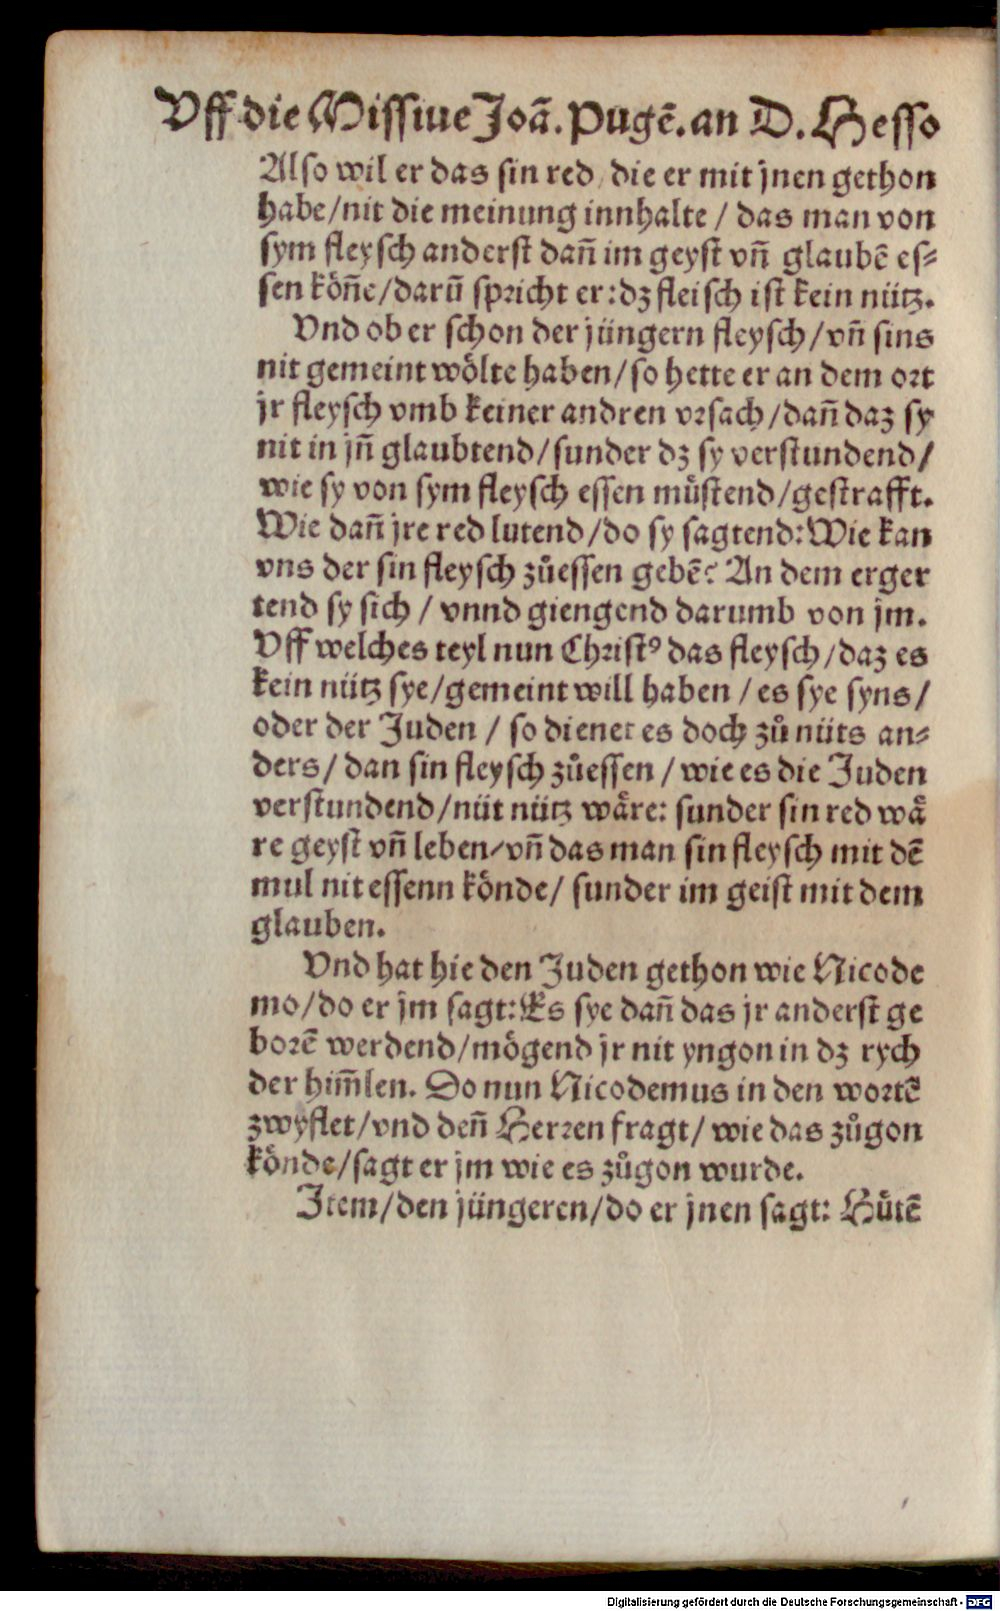 Vff die Missiue Joã. Pugẽ. an D. Hesso
Also wil er das sin red / die er mit jnen gethon
habe/nit die meinung innhalte / das man von
sym fleysch anderst dañ im geyst vñ glaubẽ es⸗
sen köñe/darũ spricht er:dz fleisch ist kein nütz.
Vnd ob er schon der jüngern fleysch/vñ sins
nit gemeint wölte haben/so hette er an dem ort
jr fleysch vmb keiner andren vrsach/dañ daz sy
nit in jñ glaubtend/sunder dz sy verstundend/
wie sy von sym fleysch essen můstend/gestrafft.
Wie dañ jre red lutend/do sy sagtend:Wie kan
vns der sin fleysch zůessen gebẽ? An dem erger
tend sy sich / vnnd giengend darumb von jm.
Vff welches teyl nun Christꝰ das fleysch/daz es
kein nütz sye/gemeint will haben / es sye syns/
oder der Juden / so dienet es doch zů nüts an⸗
ders/ dan sin fleysch zůessen / wie es die Juden
verstundend/nüt nütz wåre: sunder sin red wå
re geyst vñ leben/vñ das man sin fleysch mit dẽ
mul nit essenn könde/ sunder im geist mit dem
glauben.
Vnd hat hie den Juden gethon wie Nicode
mo/do er jm sagt:Es sye dañ das jr anderst ge
borẽ werdend/mögend jr nit yngon in dz rych
der him̃len. Do nun Nicodemus in den wortẽ
zwyflet/vnd deñ Herren fragt/ wie das zůgon
könde/sagt er jm wie es zůgon wurde.
Item/den jüngeren/do er jnen sagt: Hůtẽ
Digitalisierung gefördert durch die Deutsche Forschungsgemeinschaft - DFG